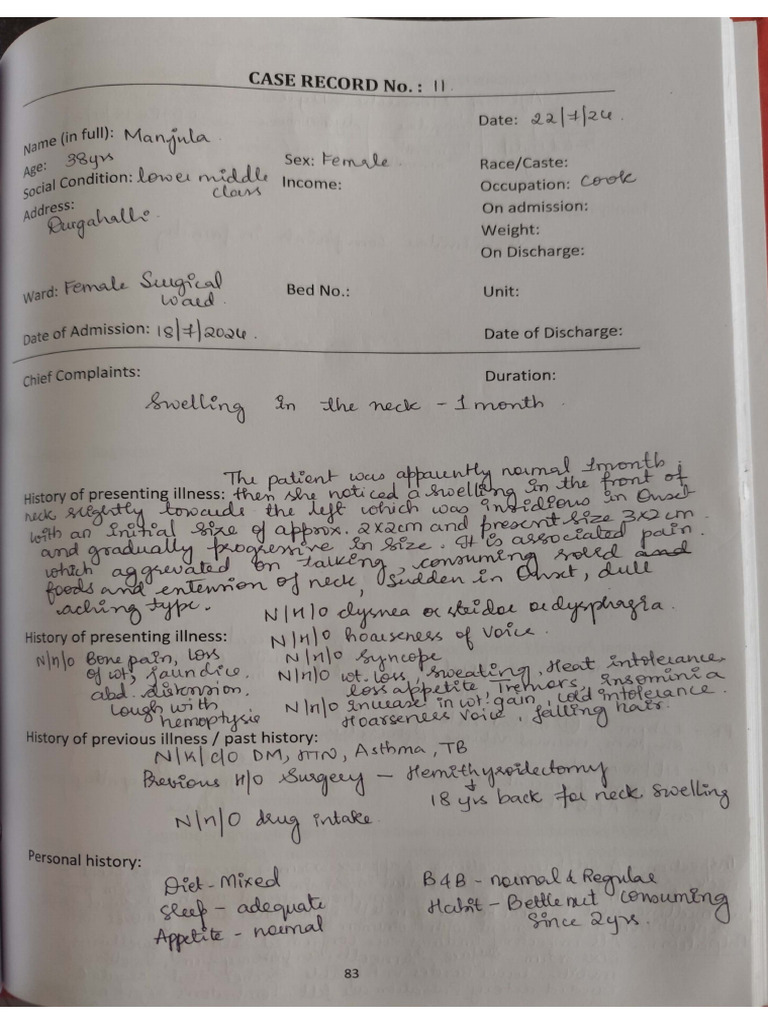 CASE RECORD No. : 11
Date: 22/7/24
Name (in full): Manjula
Age: 38yrs
Sex: Female
Race/Caste:
Social Condition: lower middle class
Income:
Occupation: Cook
Address: Durgahalli
On admission:
Weight:
On Discharge:
Ward: Female Surgical Ward
Bed No.:
Unit:
Date of Admission: 18/7/2024
Date of Discharge:
Chief Complaints:
Duration:
Swelling in the neck - 1 month
The patient was apparently normal 1month
History of presenting illness: then she noticed a swelling in the front of
neck slightly towards the left which was insidious in Onset
with an initial size of approx. 2x2cm and present size 3x2cm
and gradually progressive in size. It is associated pain.
which aggrevated on talking, consuming solid and
foods and extension of neck, sudden in Onset, dull
aching type.
N/H/O dysnea or stridor or dysphagia.
History of presenting illness:
N/H/O hoarseness of voice.
N/H/O Syncope
N/H/O Bone pain, Loss
of wt, jaundice.
abd. distension.
Cough with
hemoptysis
N/H/O wt. loss, sweating, Heat intolerance
loss appetite, Tremors, Insominia
N/H/O Increase in wt. gain, cold intolerance.
Hoarseness Voice, falling hair.
History of previous illness / past history:
N/K/C/O DM, HTN, Asthma, TB
Previous H/O Surgery - Hemithyroidectomy
18 yrs back for neck swelling
N/H/O drug intake.
Personal history:
Diet - Mixed
Sleep - adequate
Appetite - normal
B&B - normal & Regular
Habit - Bettlenut consuming
Since 2yrs.
83